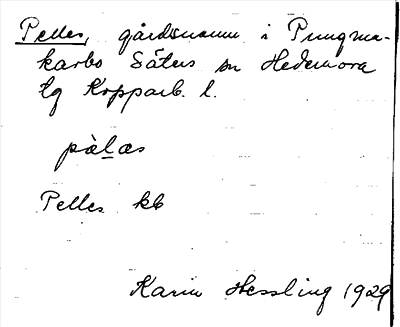 Pelles, gårdsnamn i Pungma-
karbo Säters sn Hedemora
tg Kopparb. l.
pàlæs
Pelles kb
Karin Hessling 1929